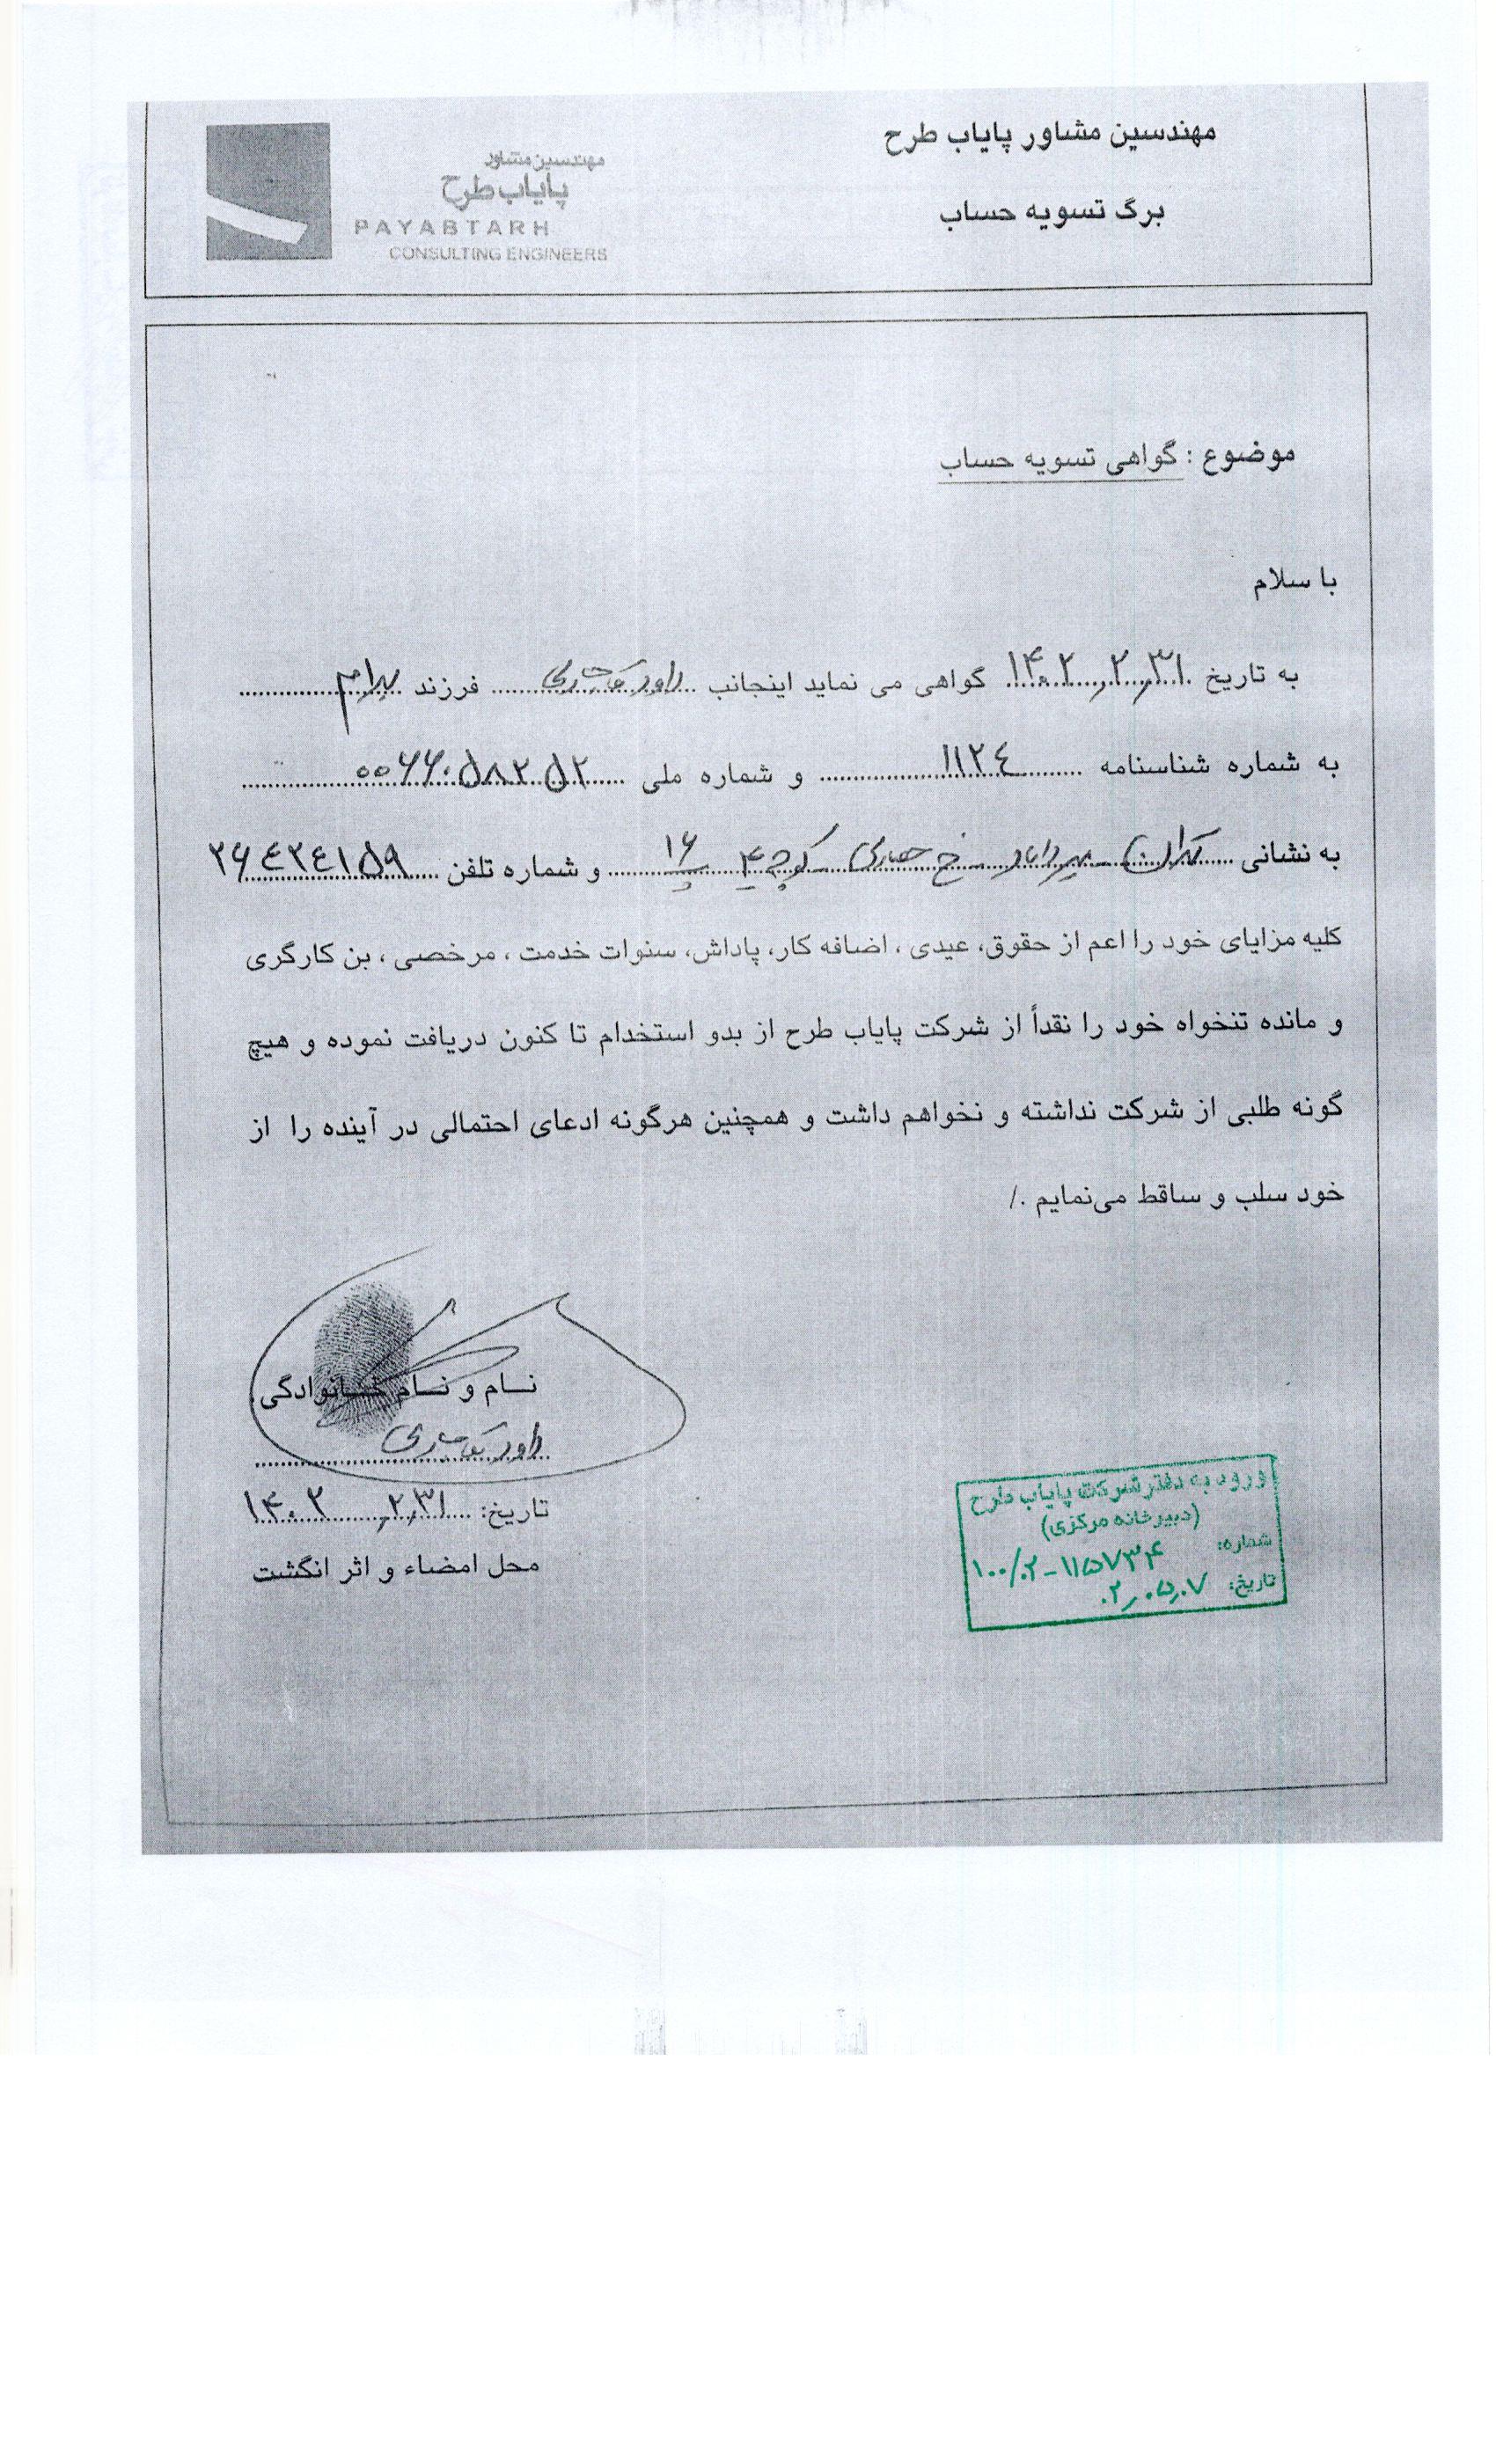 مهندسین مشاور پایاب طرح
برگ تسویه حساب
مهندسین مشاور
پایاب طرح
PAYABTARH
CONSULTING ENGINEERS
موضوع : گواهی تسویه حساب
با سلام
به تاریخ ۱۴۰۲,۲,۳۱ گواهی می نماید اینجانب داود فرزند بهرام
به شماره شناسنامه ۱۱۲۴ و شماره ملی ۰۰۶۶۰۵۸۲۵۲
به نشانی تهران - میرداماد - خ حصاری - کوچه ۴ پ ۱۶ و شماره تلفن ۲۶۴۲۴۱۵۹
کلیه مزایای خود را اعم از حقوق، عیدی ، اضافه کار، پاداش، سنوات خدمت ، مرخصی ، بن کارگری
و مانده تنخواه خود را نقداً از شرکت پایاب طرح از بدو استخدام تا کنون دریافت نموده و هیچ
گونه طلبی از شرکت نداشته و نخواهم داشت و همچنین هرگونه ادعای احتمالی در آینده را از
خود سلب و ساقط می‌نمایم ./
نام و نام خانوادگی:
داود
تاریخ: ۱۴۰۲,۲,۳۱
محل امضاء و اثر انگشت
ورود به دفتر شرکت پایاب طرح
(دبیرخانه مرکزی)
شماره: ۱۰۰/۰۲-۱۱۵۷۳۴
تاریخ: ۰۲,۰۵,۰۷